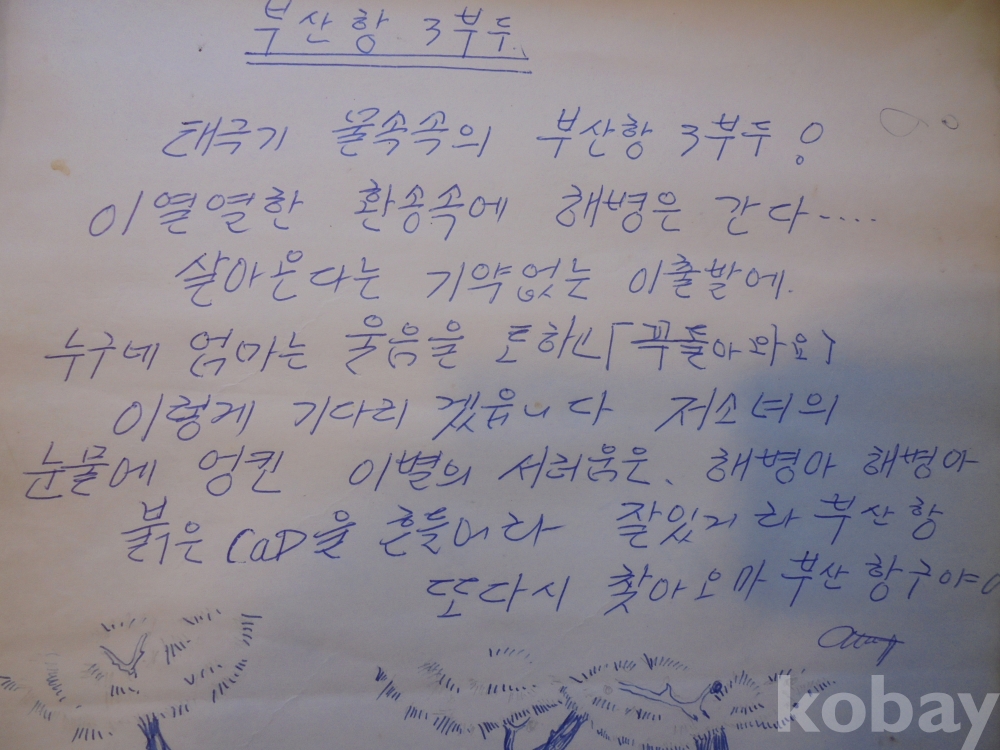 부산항 3부두
태극기 물속속의 부산항 3부두!
이열열한 환송속에 해병은 간다.....
살아온다는 기약없는 이출발에.
누구네 엄마는 울음을 토하고「꼭돌아와요」
이렇게 기다리겠읍니다 저소녀의
눈물에 엉킨 이별의 서러움은、 해병아 해병아
붉은 CaP을 흔들어라 잘있거라 부산항
또다시 찾아오마 부산항구야
kobay